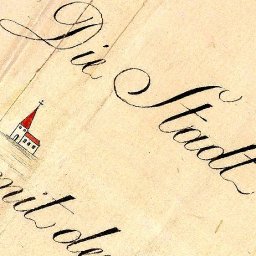 Die Stadt
mit de